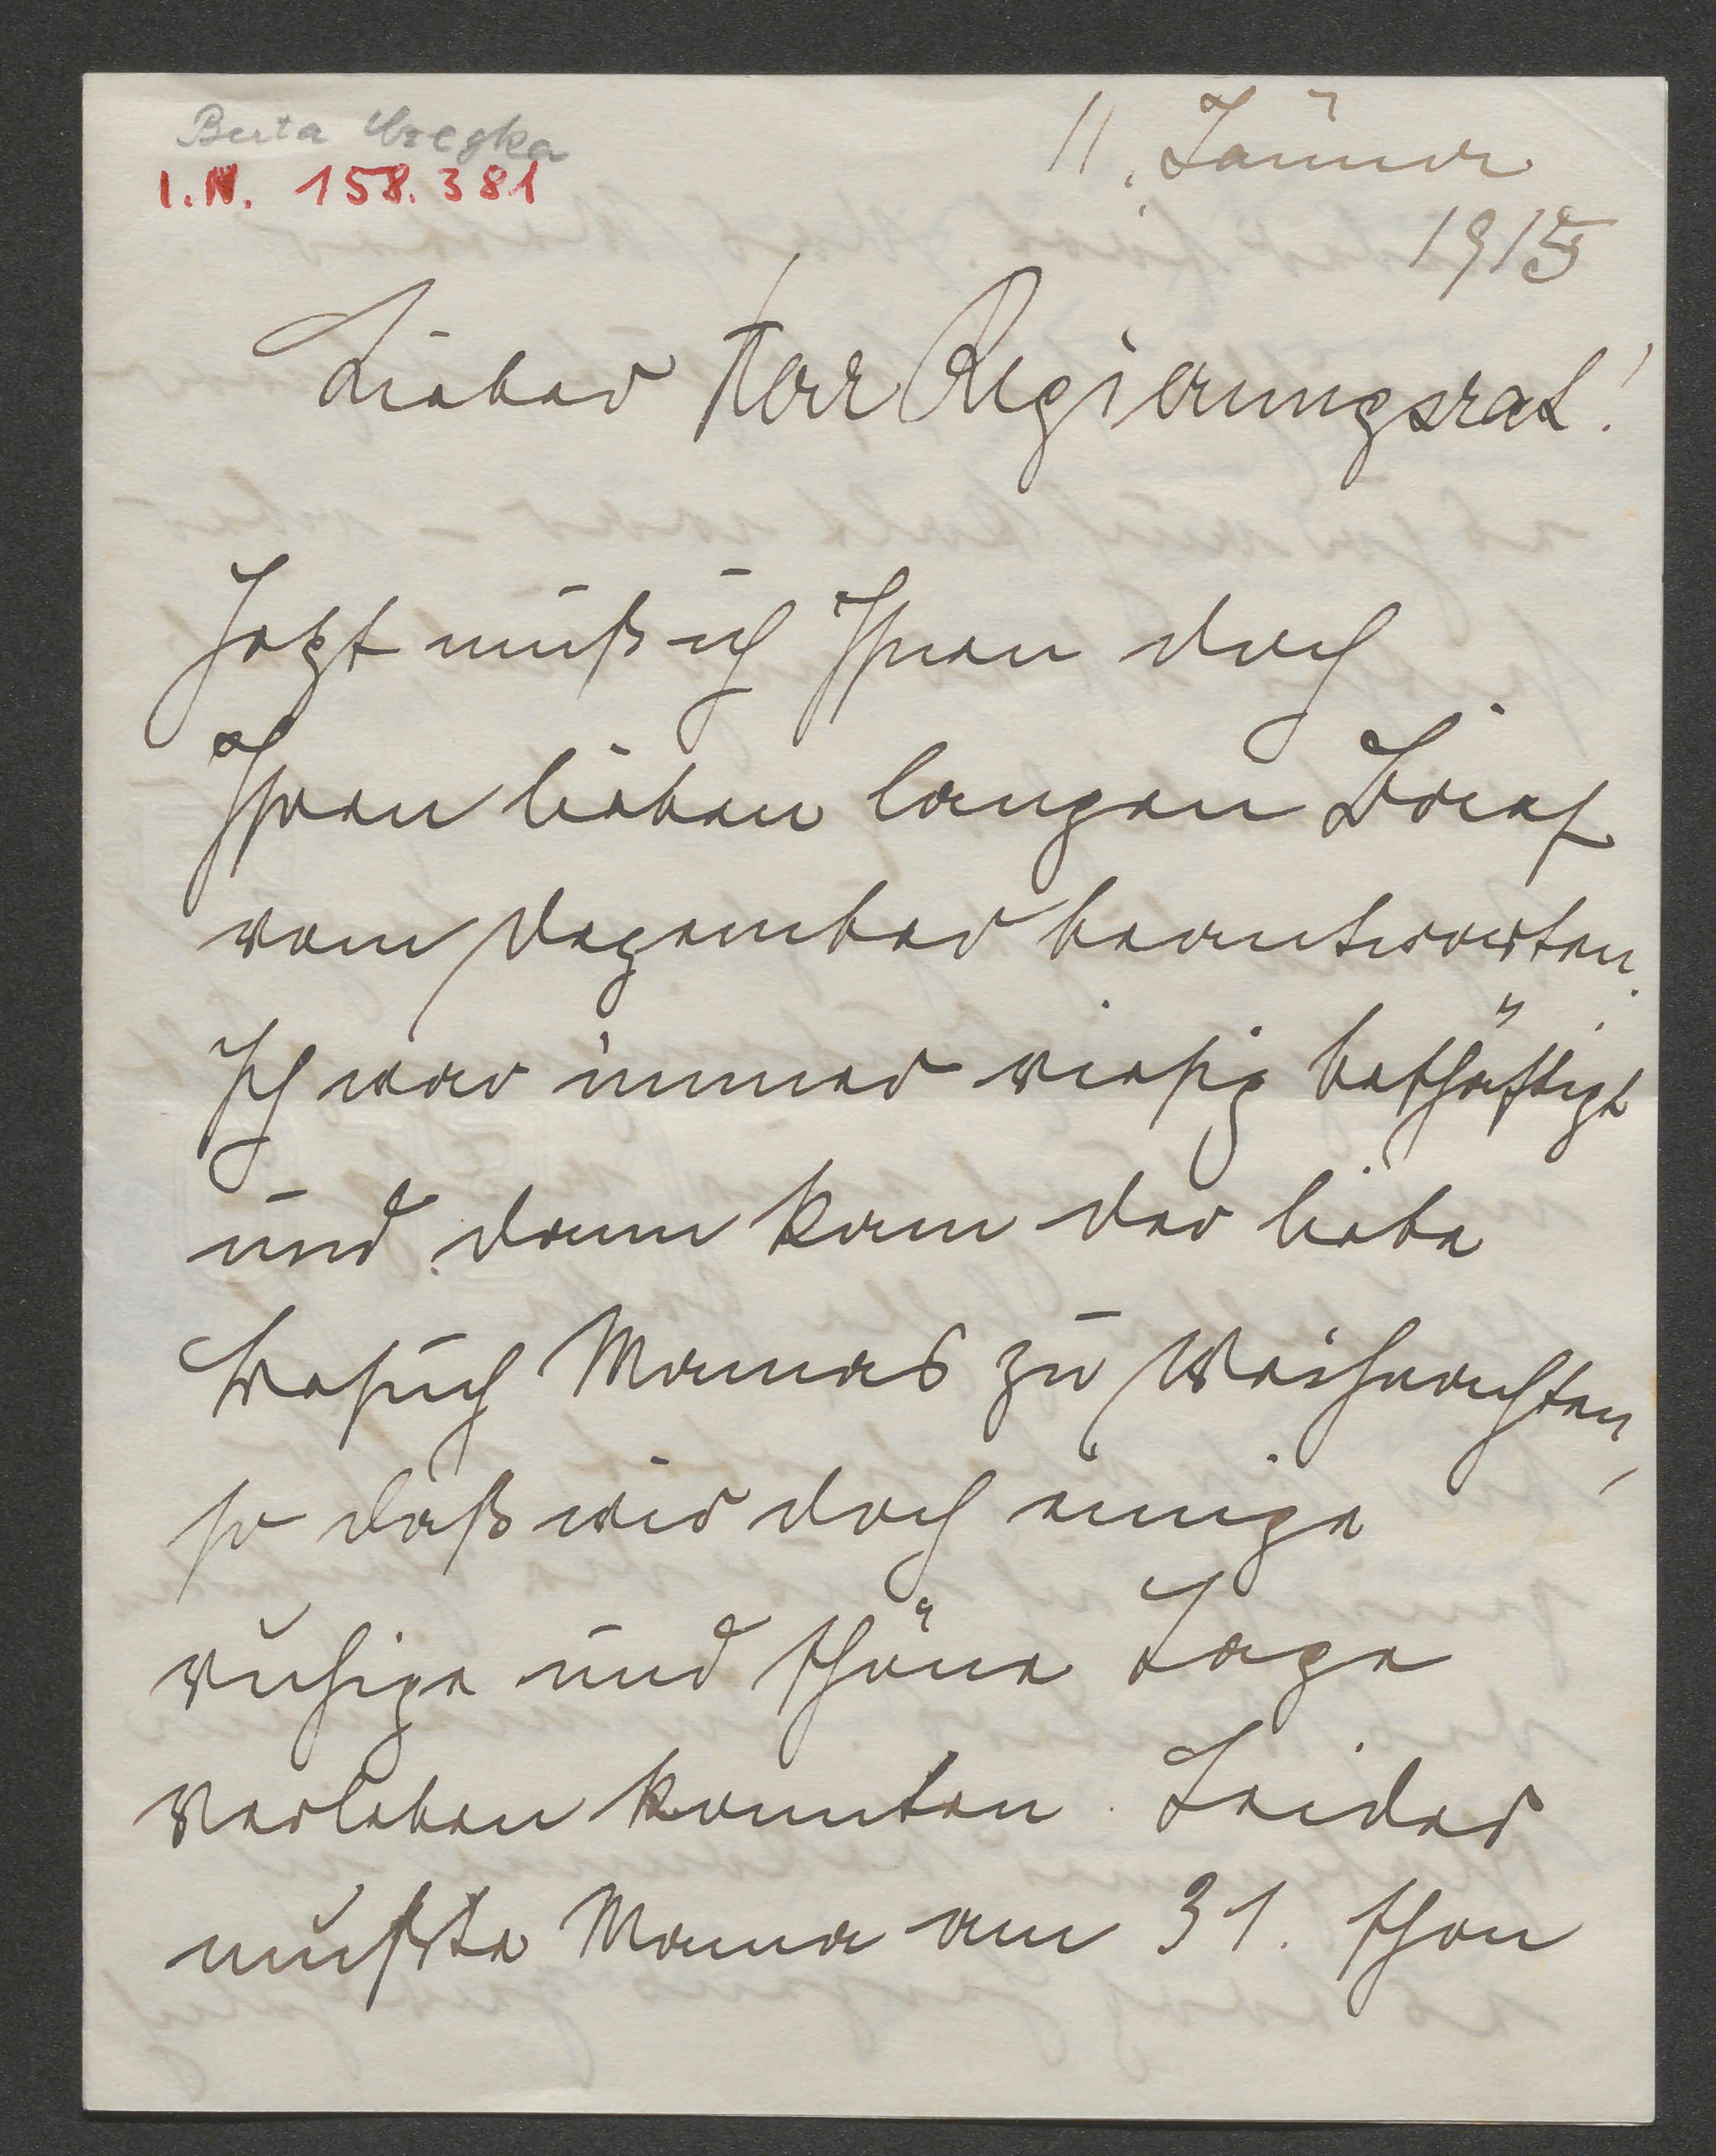 Berta Czegka
I.N. 158.381
11. Jänner
1915
Lieber Herr Regierungsrat!
Jetzt muß ich Ihnen doch
Ihren lieben langen Brief
vom Dezember beantworten.
Ich war immer riesig beschäftigt
und dann kam der liebe
Besuch Mamas zu Weihnachten,
so daß wir doch einige
ruhige und schöne Tage
verleben konnten. Leider
mußte Mama am 31. schon